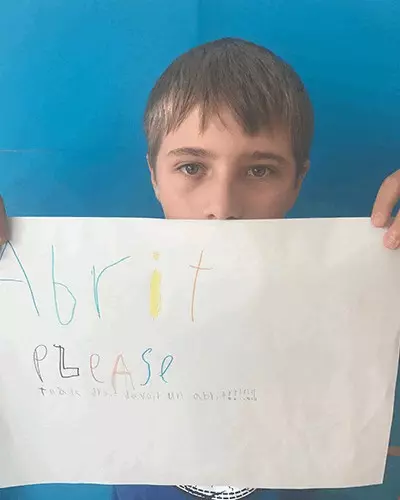 Abrit
PLEASE
le droit davoir un abrit